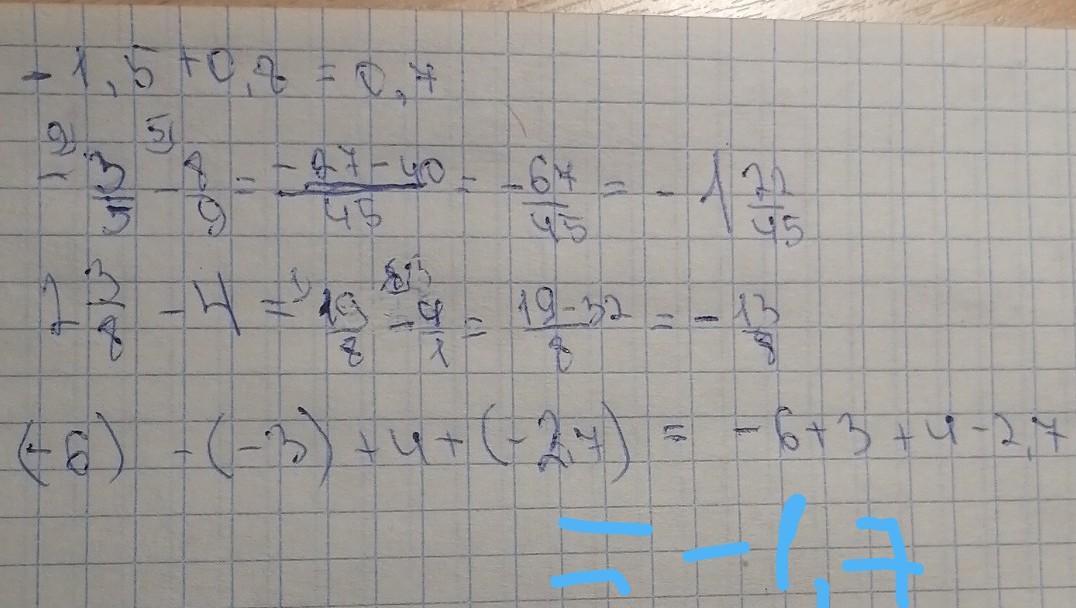 - 1,5 + 0,8 = 0,7
- 3/5 - 8/9 = -27-40/45 = - 67/45 = - 1 22/45
2 3/8 - 4 = 19/8 - 4/1 = 19-32/8 = - 13/8
(-6) - (-3) + 4 + (-2,7) = -6+3+4-2,7
= -1,7